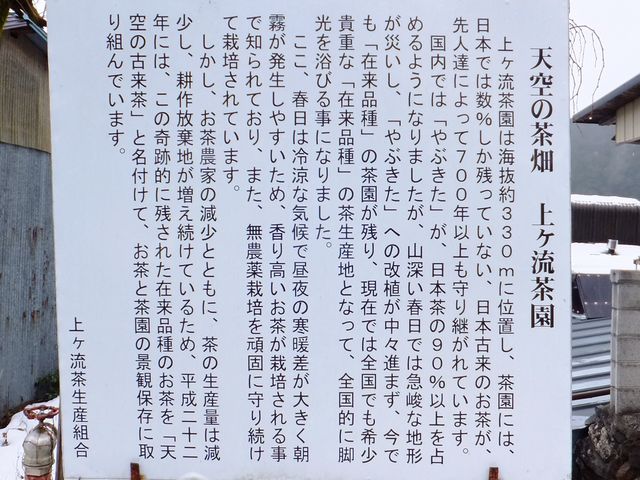 天空の茶畑　上ヶ流茶園
　上ヶ流茶園は海抜約３３０ｍに位置し、茶園には、
日本では数％しか残っていない、日本古来のお茶が、
先人達によって７００年以上も守り継がれています。
　国内では「やぶきた」が、日本茶の９０％以上を占
めるようになりましたが、山深い春日では急峻な地形
が災いし、「やぶきた」への改植が中々進まず、今で
も「在来品種」の茶園が残り、現在では全国でも希少
貴重な「在来品種」の茶生産地となって、全国的に脚
光を浴びる事になりました。
　ここ、春日は冷涼な気候で昼夜の寒暖差が大きく朝
霧が発生しやすいため、香り高いお茶が栽培される事
で知られており、また、無農薬栽培を頑固に守り続け
て栽培されています。
　しかし、お茶農家の減少とともに、茶の生産量は減
少し、耕作放棄地が増え続けているため、平成二十二
年には、この奇跡的に残された在来品種のお茶を「天
空の古来茶」と名付けて、お茶と茶園の景観保存に取
り組んでいます。
上ヶ流茶生産組合